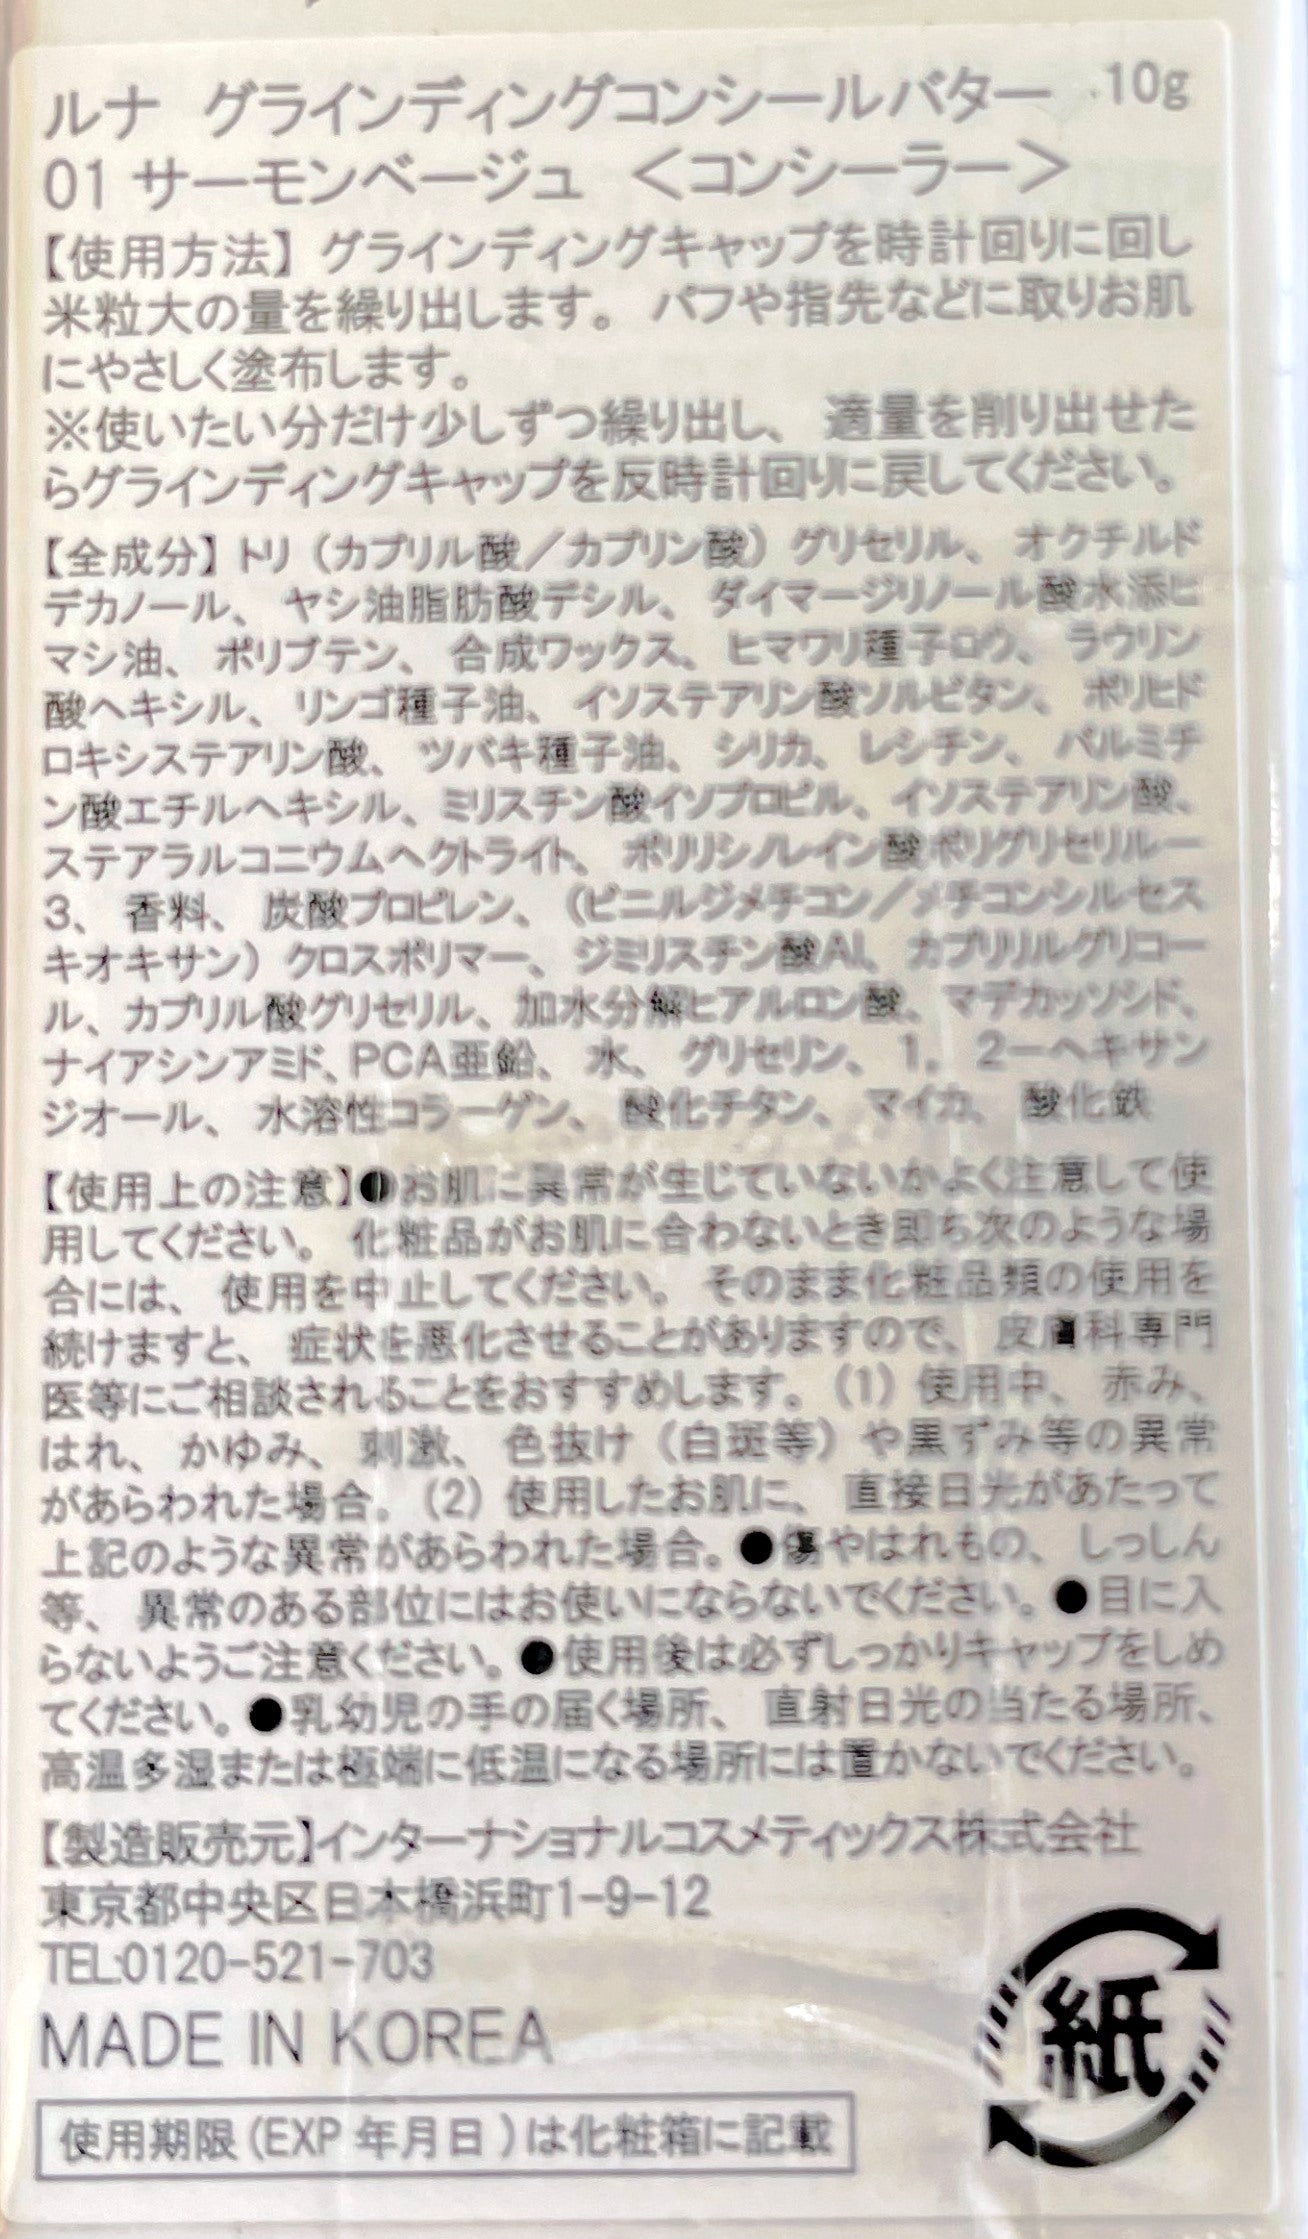 ルナ グラインディングコンシールバター 10g
01 サーモンベージュ <コンシーラー>
【使用方法】グラインディングキャップを時計回りに回し
米粒大の量を繰り出します。パフや指先などに取りお肌
にやさしく塗布します。
※使いたい分だけ少しずつ繰り出し、適量を削り出せた
らグラインディングキャップを反時計回りに戻してください。
【全成分】トリ(カプリル酸/カプリン酸)グリセリル、オクチルド
デカノール、ヤシ油脂肪酸デシル、ダイマージリノール酸水添ヒ
マシ油、ポリブテン、合成ワックス、ヒマワリ種子ロウ、ラウリン
酸ヘキシル、リンゴ種子油、イソステアリン酸ソルビタン、ポリヒド
ロキシステアリン酸、ツバキ種子油、シリカ、レシチン、パルミチ
ン酸エチルヘキシル、ミリスチン酸イソプロピル、イソステアリン酸、
ステアラルコニウムヘクトライト、ポリリシノレイン酸ポリグリセリルー
3、香料、炭酸プロピレン、(ビニルジメチコン/メチコンシルセス
キオキサン)クロスポリマー、ジミリスチン酸Al、カプリリルグリコー
ル、カプリル酸グリセリル、加水分解ヒアルロン酸、マデカッソシド、
ナイアシンアミド、PCA亜鉛、水、グリセリン、1，2ーヘキサン
ジオール、水溶性コラーゲン、酸化チタン、マイカ、酸化鉄
【使用上の注意】●お肌に異常が生じていないかよく注意して使
用してください。化粧品がお肌に合わないとき即ち次のような場
合には、使用を中止してください。そのまま化粧品類の使用を
続けますと、症状を悪化させることがありますので、皮膚科専門
医等にご相談されることをおすすめします。(1)使用中、赤み、
はれ、かゆみ、刺激、色抜け(白斑等)や黒ずみ等の異常
があらわれた場合。(2)使用したお肌に、直接日光があたって
上記のような異常があらわれた場合。●傷やはれもの、しっしん
等、異常のある部位にはお使いにならないでください。●目に入
らないようご注意ください。●使用後は必ずしっかりキャップをしめ
てください。●乳幼児の手の届く場所、直射日光の当たる場所、
高温多湿または極端に低温になる場所には置かないでください。
【製造販売元】インターナショナルコスメティックス株式会社
東京都中央区日本橋浜町1-9-12
TEL:0120-521-703
MADE IN KOREA
紙
使用期限(EXP 年月日)は化粧箱に記載